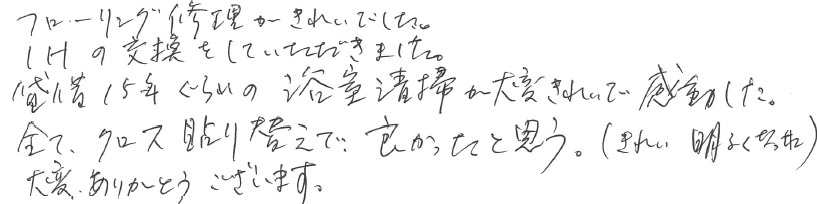 フローリング修理がきれいでした。
IHの交換をしていただきました。
賃借15年ぐらいの浴室清掃が大変きれいで感動した。
全て、クロス貼り替えで、良かったと思う。(きれい 明るくなった)
大変、ありがとうございます。